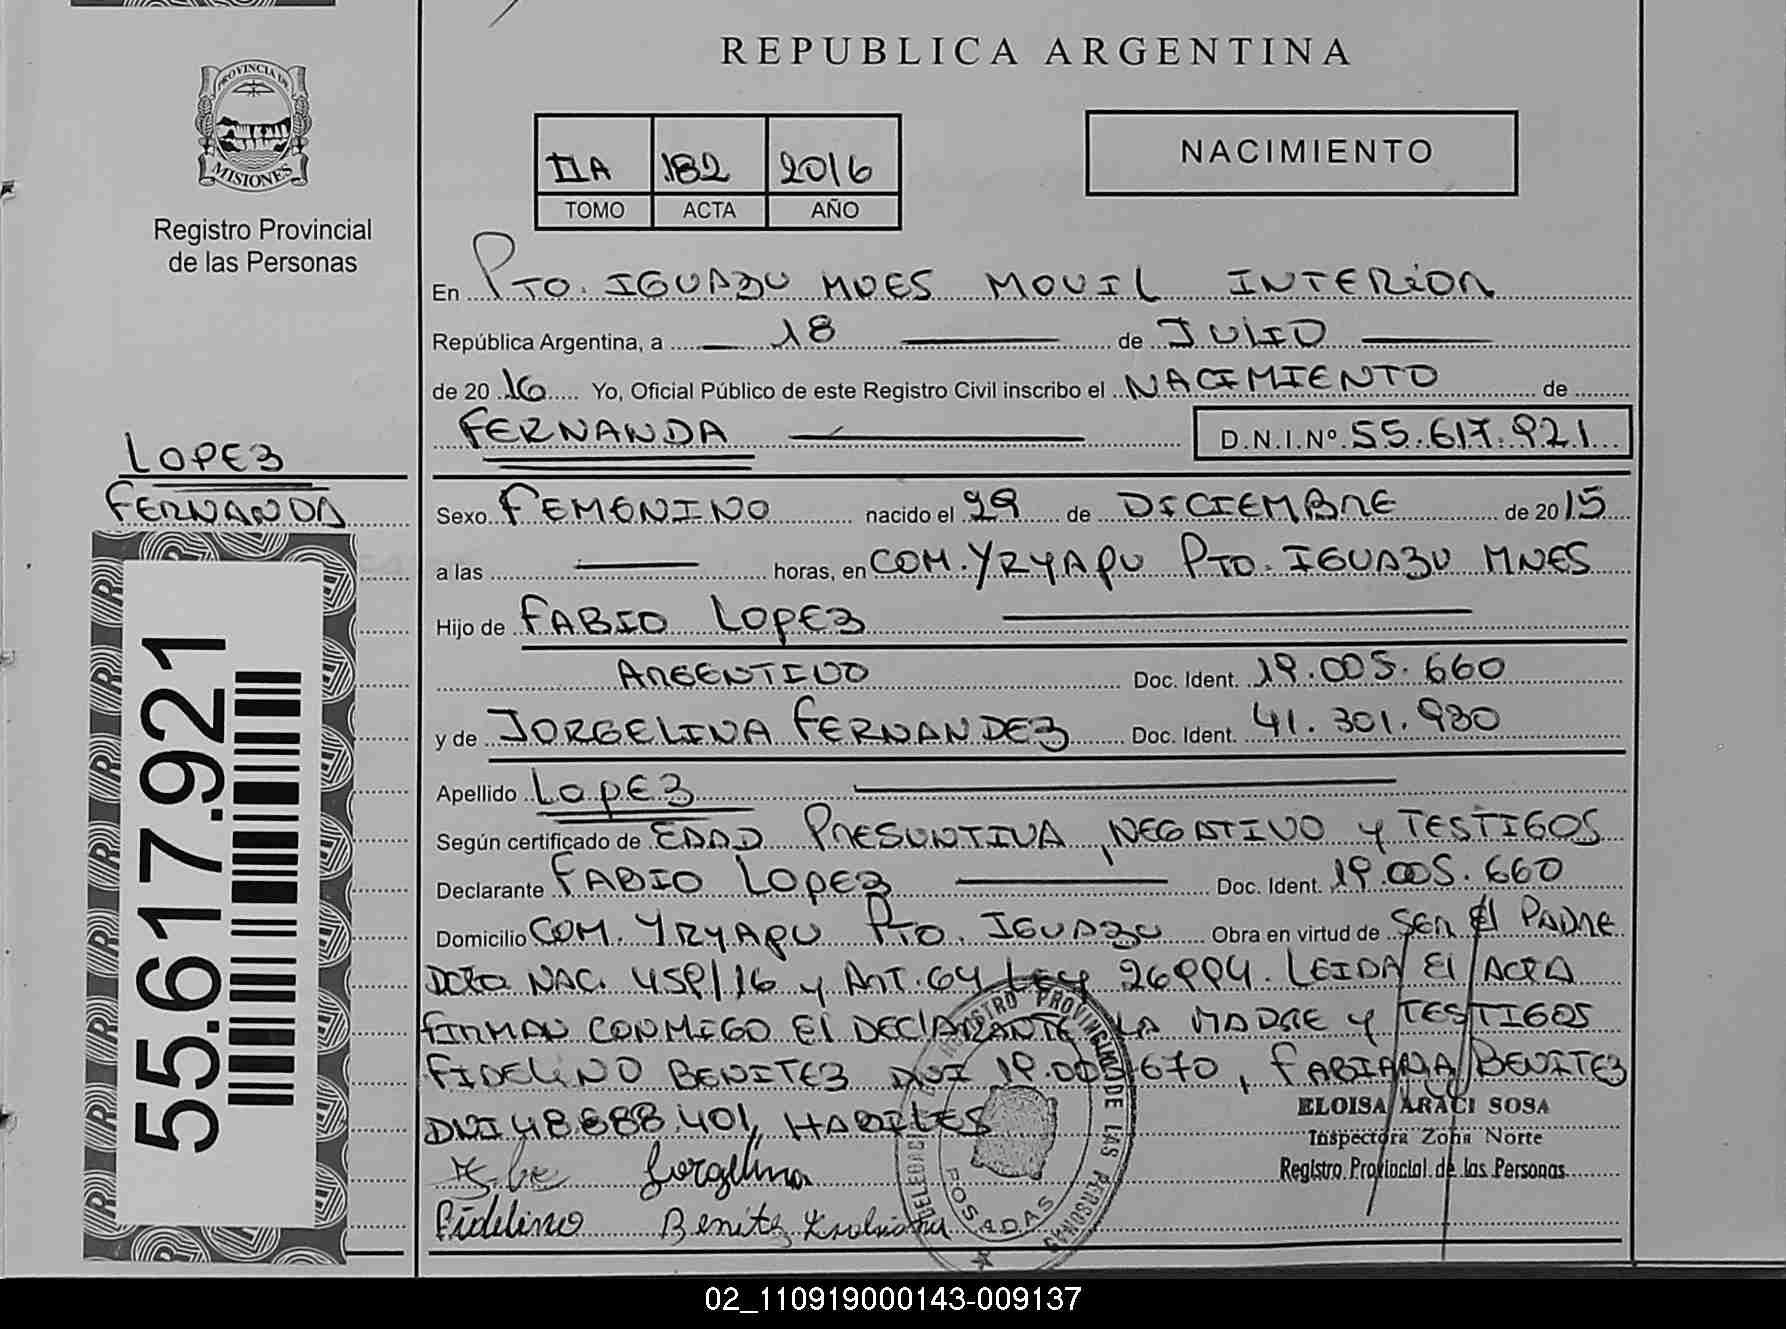 REPUBLICA ARGENTINA
PROVINCIA DE
MISIONES
Registro Provincial
de las Personas
IIA 182 2016
TOMO ACTA AÑO
NACIMIENTO
En PTO. IGUAZU MNES MOVIL INTERIOR
República Argentina, a 18 de JULIO
de 20 16 Yo, Oficial Público de este Registro Civil inscribo el NACIMIENTO de
FERNANDA D.N.I.Nº 55.617.921
LOPEZ
FERNANDA
Sexo FEMENINO nacido el 29 de DICIEMBRE de 20 15
a las horas, en COM. YRYAPU PTO. IGUAZU MNES
Hijo de FABIO LOPEZ
ARGENTINO Doc. Ident. 19.005.660
y de JORGELINA FERNANDEZ Doc. Ident. 41.301.930
Apellido LOPEZ
Según certificado de EDAD PRESUNTIVA, NEGATIVO y TESTIGOS
Declarante FABIO LOPEZ Doc. Ident. 19.005.660
Domicilio COM. YRYAPU PTO. IGUAZU Obra en virtud de SER El PADRE
DCTO NAC. 459/16 y ART. 64 LEY 26994. LEIDA El ACTA
FIRMAN CONMIGO El DEClARANTE LA MADRE y TESTIGOS
FIDELINO BENITEZ DNI 19.005.670, FABIANA BENITEZ
DNI 48.688.401, HABILES
55.617.921
ELOISA ARACI SOSA
Inspectora Zona Norte
Registro Provincial de las Personas
Jorgelina
Fidelino Benitez
DELEGACION REGISTRO PROVINCIAL DE LAS PERSONAS
POSADAS
02_110919000143-009137